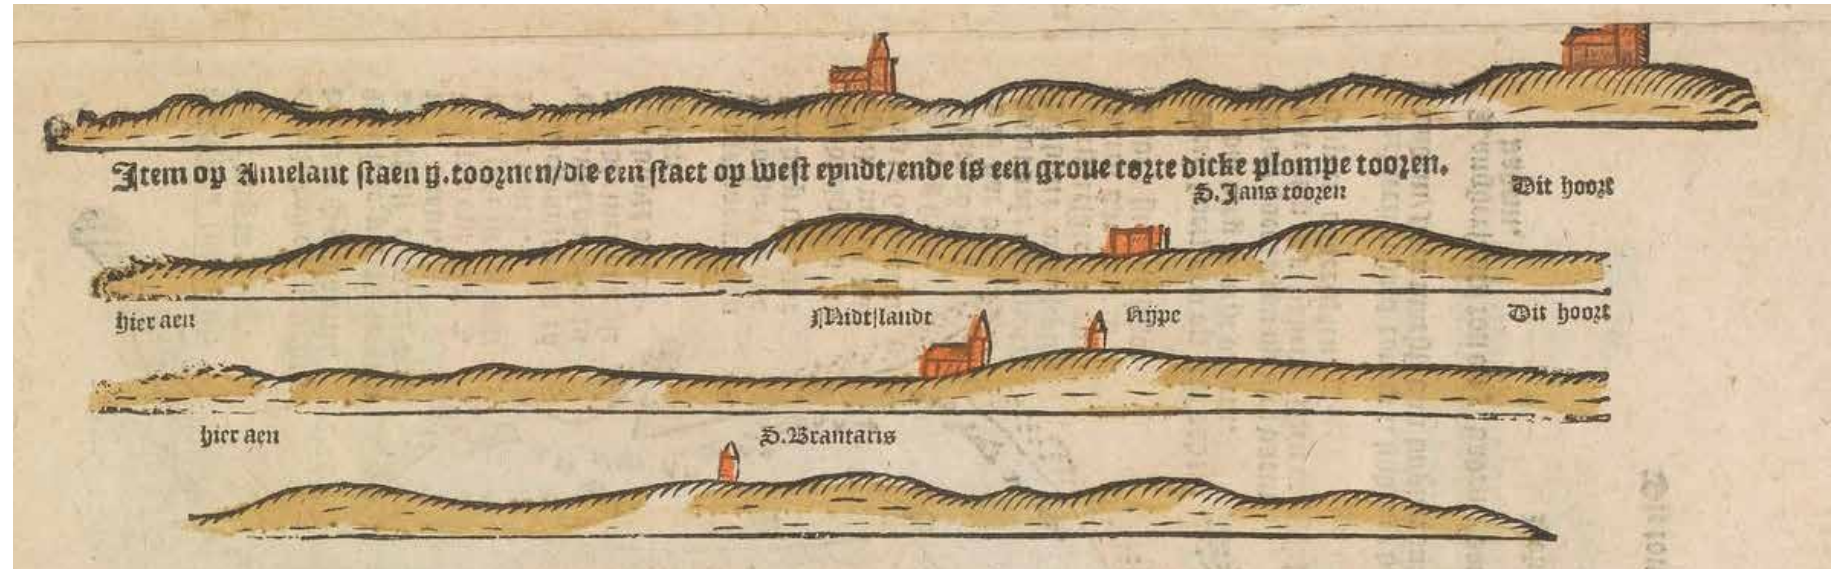 Item op Amelant staen ij.toornen/die een staet op west eyndt/ende is een groue corte dicke plompe tooren.
S.Jans tooren
Dit hoort
hier aen
Midtslandt
Rijpe
Dit hoort
hier aen
S.Brantaris